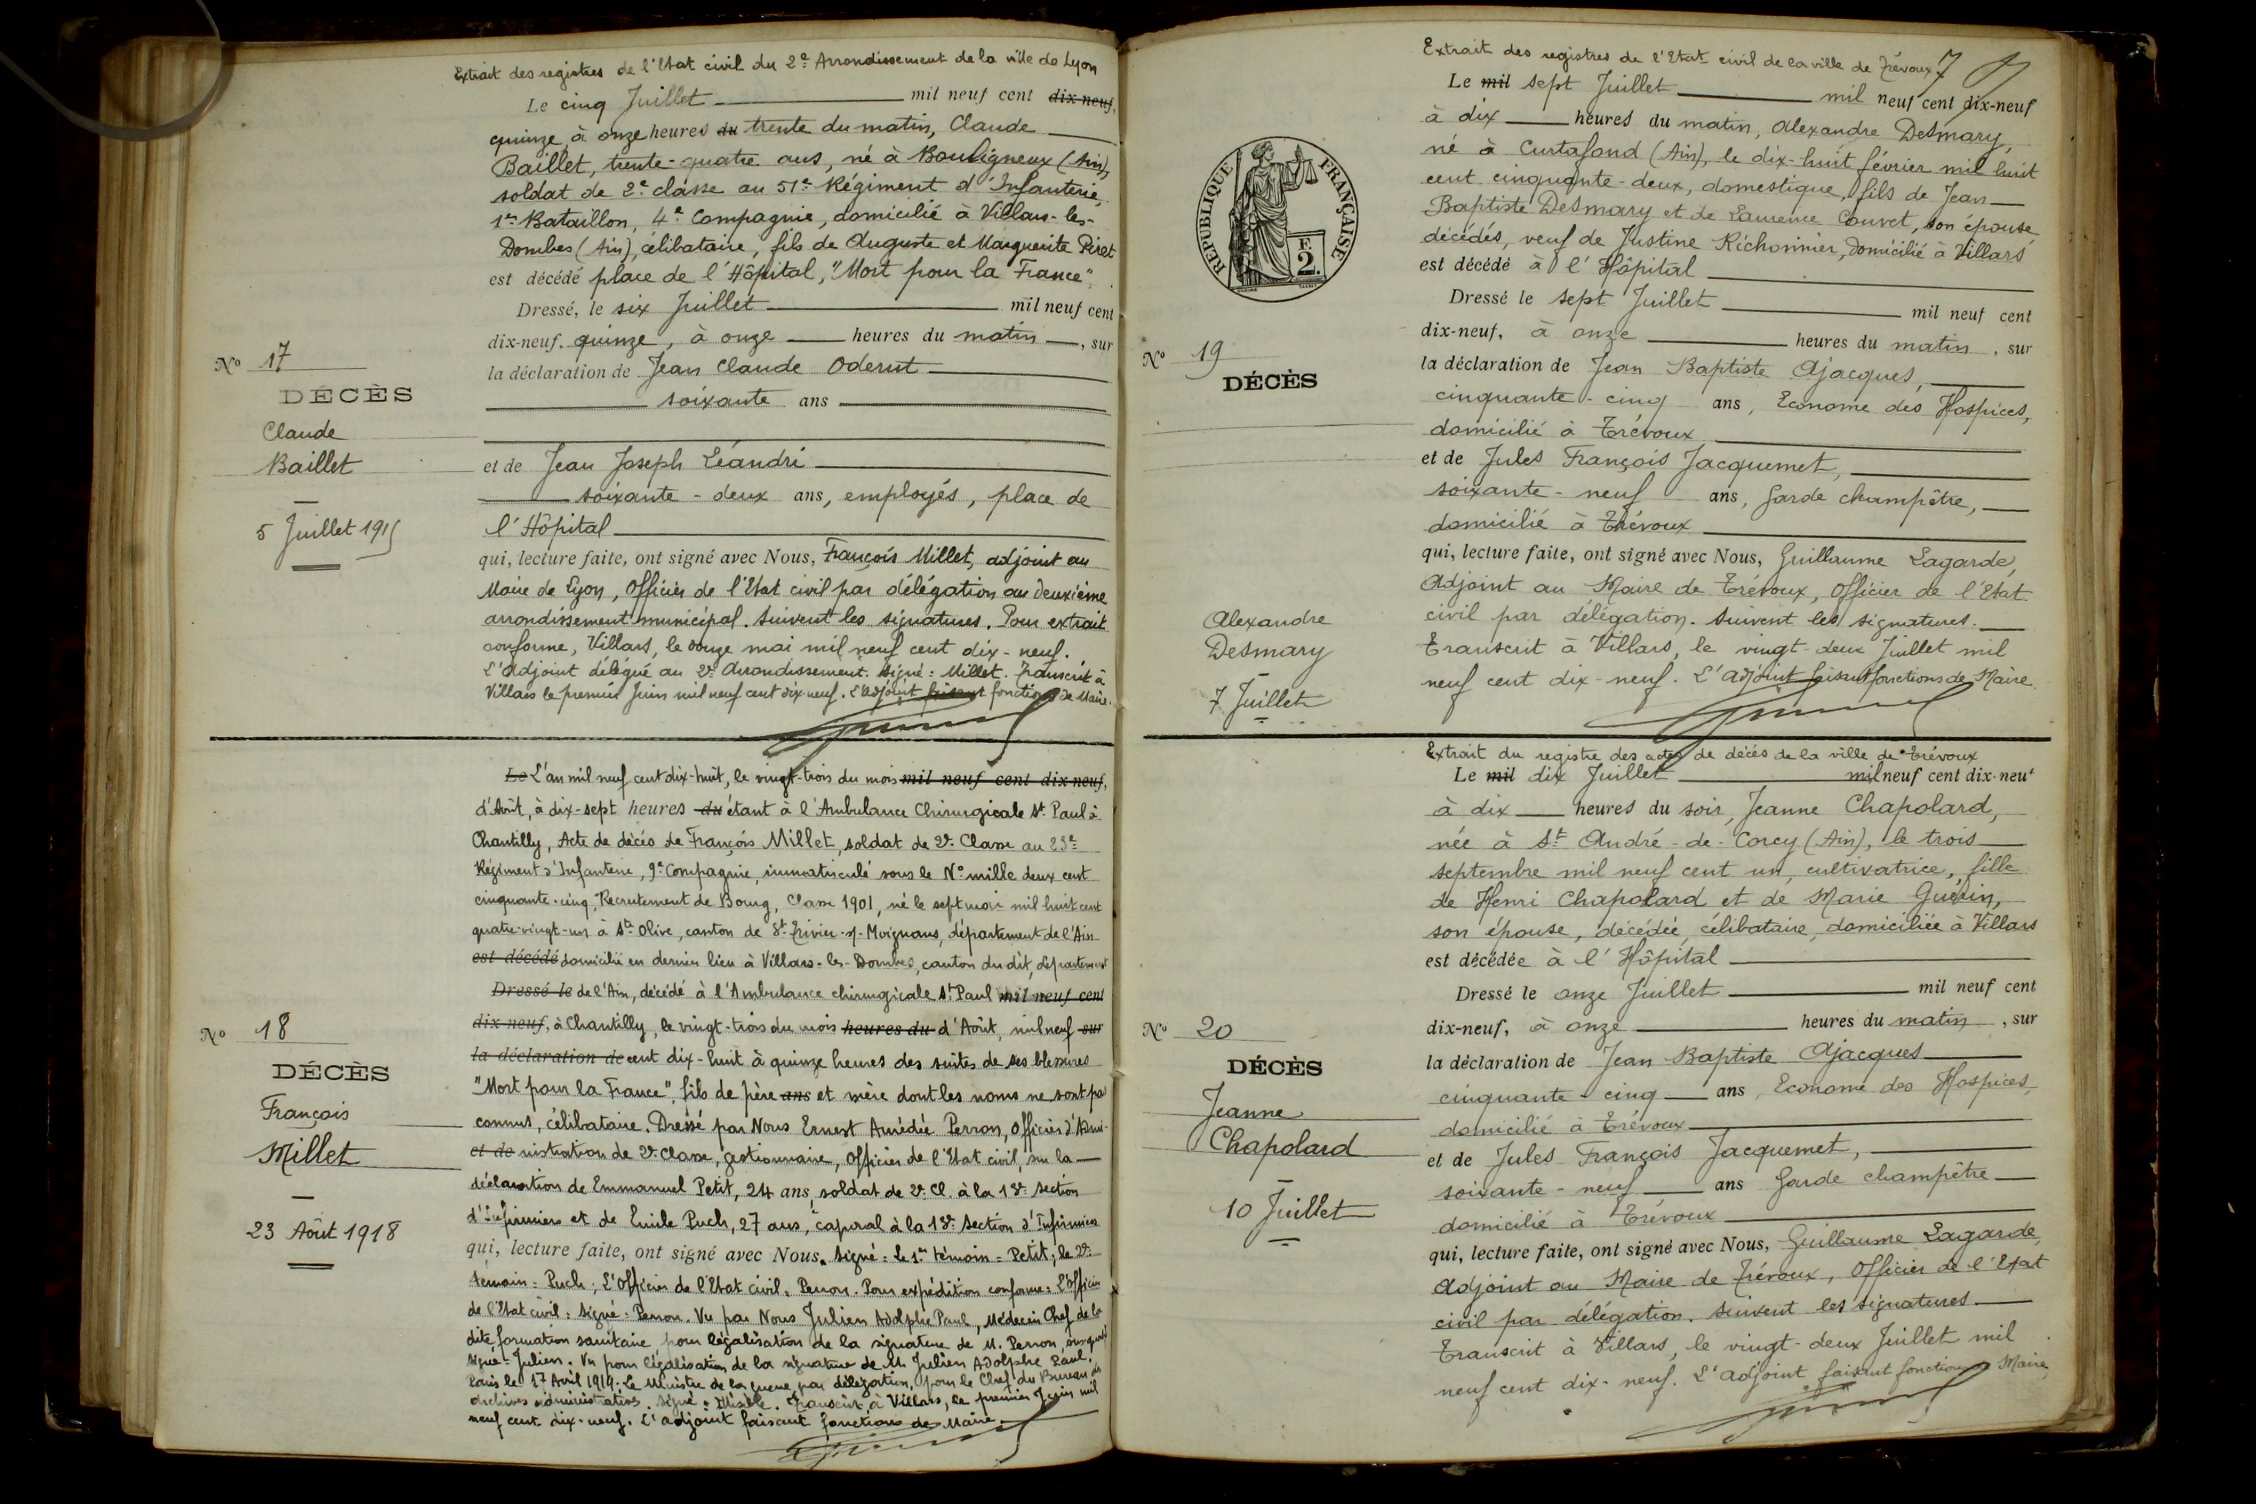 Extrait des registres de l'Etat civil du 2e Arrondissement de la ville de Lyon
Le cinq Juillet mil neuf cent dix-neuf,
quinze, à onze heures du trente du matin, Claude
Baillet, trente-quatre ans, né à Bouligneux (Ain),
soldat de 2e classe au 51e Régiment d'Infanterie,
1er Bataillon, 4e Compagnie, domicilié à Villars-les-
Dombes (Ain), célibataire, fils de Auguste et Marguerite Péret
est décédé place de l'Hôpital, "Mort pour la France".
Dressé, le six Juillet mil neuf cent
dix-neuf. quinze, à onze heures du matin, sur
la déclaration de Jean Claude Oderut
soixante ans
et de Jean Joseph Léandri
soixante-deux ans, employés, place de
l'Hôpital
qui, lecture faite, ont signé avec Nous, François Millet, adjoint au
Maire de Lyon, Officier de l'Etat civil par délégation au deuxième
arrondissement municipal. Suivent les signatures. Pour extrait
conforme, Villars, le onze mai mil neuf cent dix-neuf.
L'adjoint délégué au 2e Arrondissement. Signé: Millet. Transcrit à
Villars le premier Juin mil neuf cent dix neuf. L'adjoint faisant fonctions de Maire.
No 17
DÉCÈS
Claude
Baillet
5 Juillet 1915
Le L'an mil neuf cent dix-huit, le vingt-trois du mois mil neuf cent dix-neuf,
d'Août, à dix-sept heures du étant à l'Ambulance Chirurgicale St Paul à
Chantilly, Acte de décès de François Millet, soldat de 2e Classe au 23e
Régiment d'Infanterie, 9e Compagnie, immatriculé sous le No mille deux cent
cinquante-cinq, Recrutement de Bourg, Classe 1901, né le sept mai mil huit cent
quatre-vingt-un à Ste Olive, canton de St Trivier-s/-Moignans, département de l'Ain
est décédé domicilié en dernier lieu à Villars-les-Dombes, canton du dit, département
Dressé le de l'Ain, décédé à l'Ambulance chirurgicale St Paul mil neuf cent
dix-neuf, à Chantilly, le vingt-trois du mois heures du d'Août, mil neuf sur
la déclaration de cent dix-huit à quinze heures des suites de ses blessures
"Mort pour la France", fils de père ans et mère dont les noms ne sont pas
connus, célibataire. Dressé par Nous Ernest Amédée Perron, Officier d'Admi-
et de nistration de 2e Classe, gestionnaire, Officier de l'Etat civil, sur la
déclaration de Emmanuel Petit, 24 ans, soldat de 2e Cl. à la 13e Section
d'Infirmiers et de Emile Puch, 27 ans, caporal à la 13e Section d'Infirmiers
qui, lecture faite, ont signé avec Nous. Signé: Le 1er témoin = Petit; le 2e
témoin = Puch; L'Officier de l'Etat civil, Perron. Pour expédition conforme: L'Officier
de l'Etat civil: Signé: Perron. Vu par Nous Julien Adolphe Paul, Médecin Chef de la
dite formation sanitaire, pour légalisation de la signature de M. Perron,
signé = Julien. Vu pour légalisation de la signature de M. Julien Adolphe Paul.
Paris le 17 Avril 1919. Le Ministre de la guerre, par délégation, pour le Chef du Bureau des
archives administratives. Signé: Illisible. Transcrit à Villars, le premier Juin mil
neuf cent dix-neuf. L'adjoint faisant fonctions de Maire.
No 18
DÉCÈS
François
Millet
23 Août 1918
7
Extrait des registres de l'Etat civil de la ville de Trévoux
Le mil sept Juillet mil neuf cent dix-neuf
à dix heures du matin, Alexandre Desmary,
né à Curtafond (Ain), le dix-huit février mil huit
cent cinquante-deux, domestique, fils de Jean
Baptiste Desmary et de Laurence Couvet, son épouse
décédés, veuf de Justine Richonnier, domicilié à Villars
est décédé à l'Hôpital
Dressé le sept Juillet mil neuf cent
dix-neuf, à onze heures du matin, sur
la déclaration de Jean Baptiste Ajacques,
cinquante-cinq ans, Econome des Hospices,
domicilié à Trévoux
et de Jules François Jacquemet,
soixante-neuf ans, Garde champêtre,
domicilié à Trévoux
qui, lecture faite, ont signé avec Nous, Guillaume Lagarde,
Adjoint au Maire de Trévoux, Officier de l'Etat
civil par délégation. Suivent les signatures.
Transcrit à Villars, le vingt-deux Juillet mil
neuf cent dix-neuf. L'adjoint faisant fonctions de Maire.
RÉPUBLIQUE FRANÇAISE
F.
2.
No 19
DÉCÈS
Alexandre
Desmary
7 Juillet
Extrait du registre des actes de décès de la ville de Trévoux
Le mil dix Juillet mil neuf cent dix-neuf
à dix heures du soir, Jeanne Chapolard,
née à St André-de-Corcy (Ain), le trois
septembre mil neuf cent un, cultivatrice, fille
de Henri Chapolard et de Marie Guérin,
son épouse, décédée, célibataire, domiciliée à Villars
est décédée à l'Hôpital
Dressé le onze Juillet mil neuf cent
dix-neuf, à onze heures du matin, sur
la déclaration de Jean Baptiste Ajacques
cinquante-cinq ans, Econome des Hospices,
domicilié à Trévoux
et de Jules François Jacquemet,
soixante-neuf ans Garde champêtre
domicilié à Trévoux
qui, lecture faite, ont signé avec Nous, Guillaume Lagarde,
Adjoint au Maire de Trévoux, Officier de l'Etat
civil par délégation. Suivent les signatures.
Transcrit à Villars, le vingt-deux Juillet mil
neuf cent dix-neuf. L'adjoint faisant fonctions Maire
No 20
DÉCÈS
Jeanne
Chapolard
10 Juillet